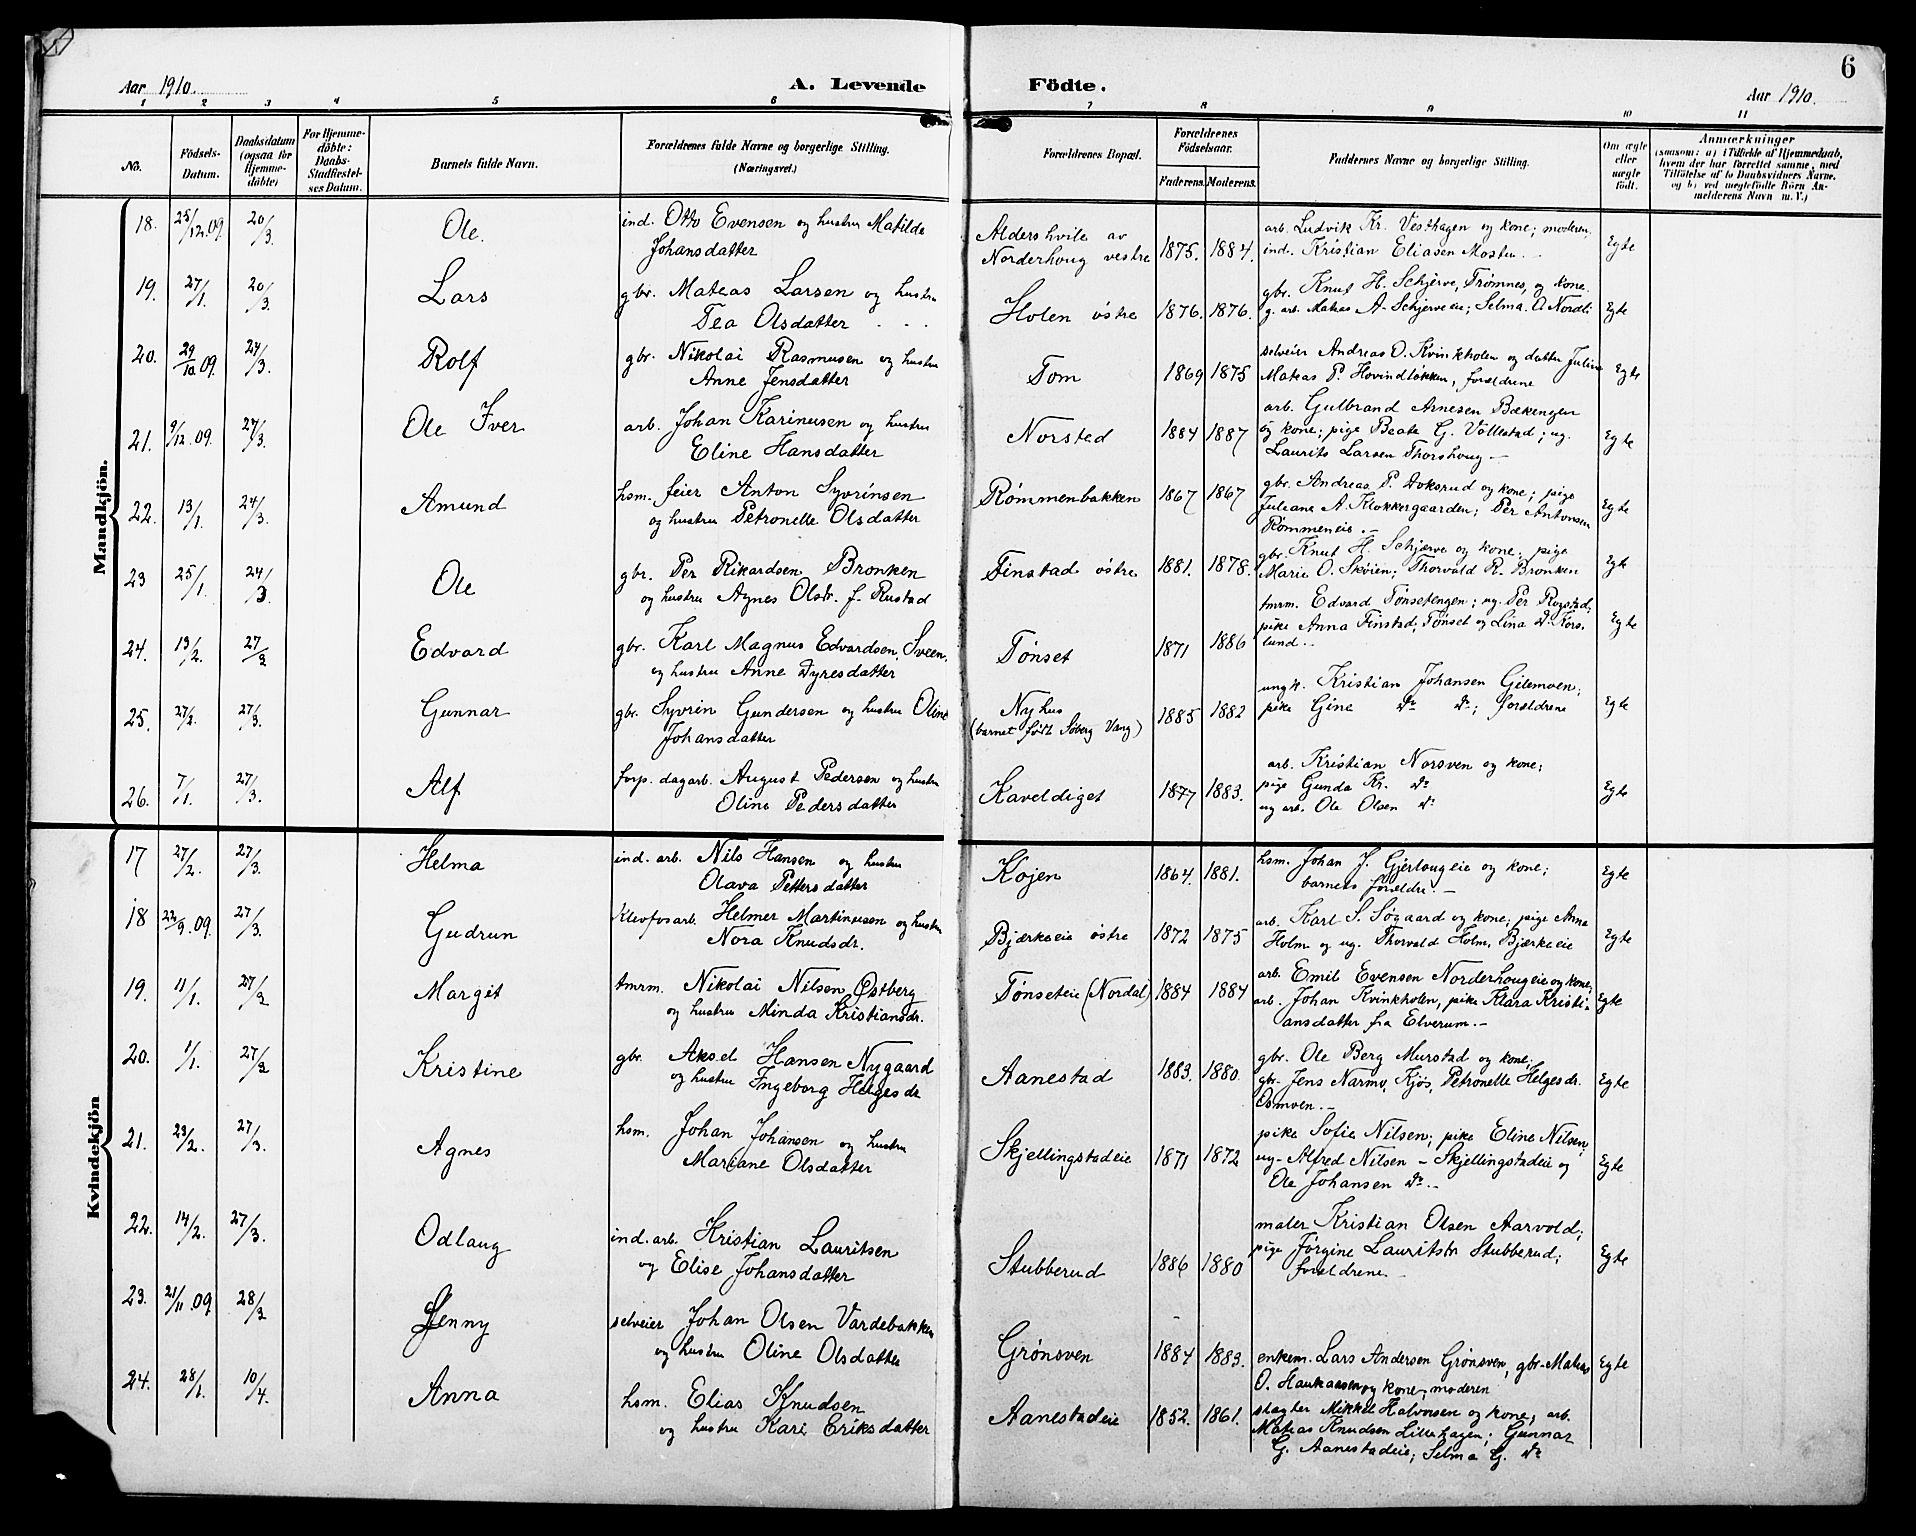 Aar 1910.
A. Levende
Födte.
6
Aar 1910.
1 2 3 4 5 6 7 8 9 10 11
No.
Födsels-
Datum.
Daabsdatum
(ogsaa for
Hjemme-
döbte)
For Hjemme-
döbte:
Daabs-
Stadfæstel-
ses Datum.
Barnets fulde Navn.
Forældrenes fulde Navne og borgerlige Stilling.
(Næringsvei.)
Forældrenes Bopæl.
Forældrenes
Födselsaar.
Faderens. Moderens.
Faddernes Navne og borgerlige Stilling.
Om ægte
eller
uægte
født.
Anmærkninger
(saasom: a) i Tilfælde af Hjemmedaab,
hvem der har forrettet samme, med
Tilföielse af to Daabsvidners Navne.
og b) ved uægtefödte Börn An-
melderens Navn m. V.)
Mandkjön.
18. 25/12.09. 20/3. Ole. ind. Otto Evensen og hustru Matilde
Johansdatter
Aldershvile av
Norderhoug vestre 1875. 1884.
arb. Ludvik Kr. Vesthagen og kone; moderen;
ind. Kristian Eliasen Mosten. Egte
19. 27/1. 20/3. Lars gbr. Mateas Larsen og hustru
Tea Olsdatter
Holen östre 1876. 1876.
gbr. Knut H. Schjerve, Trømnes, og kone.
g. arb. Mateas A. Schjerveeie; Selma O. Nordli Egte
20. 29/10 09. 24/3. Rolf gbr. Nikolai Rasmusen og hustru
Anne Jensdatter
Tom 1869 1875
selveier Andreas O. Kvinkholen og datter Juline
Mateas P. Hovindløkken, forældrene Egte
21. 9/12.09. 27/3. Ole Iver arb. Johan Karinusen og hustru
Eline Hansdatter
Norstad 1884 1887
arb. Gulbrand Arnesen Bækengen
og kone; pige Beate G. Vollestad; ug.
Laurits Larsen Thorshoug Egte
22. 13/1. 24/3. Amund hsm. feier Anton Syvrinsen
og hustru Petronelle Olsdatter
Rømmenbakken 1867 1867
gbr. Andreas P. Doksrud og kone; pige
Juliane A. Klokkergaarden; Per Antonsen
Rømmeneie. Egte
23 25/1. 24/3. Ole gbr. Per Rikardsen Bronken
og hustru Agnes Olsdr. f. Rustad
Finstad östre 1881. 1878.
gbr. Knut H. Schjerve og kone; pige
Marie O. Skøien; Thorvald R. Bronken Egte
24. 13/2. 27/3 Edvard gbr. Karl Magnus Edvardsen Sveen.
og hustru Anne Dyresdatter
Tønset 1871 1886
tmrm. Edvard Tønsetengen; ug. Per Rogstad;
pike Anna Finstad, Tønset og Lina D. Kors-
lund. Egte
25. 27/2. 27/3. Gunnar gbr. Syvrin Gundersen og hustru Oline
Johansdatter
Nyhus
(barnet født Søberg Vang) 1885 1882
ungk. Kristian Johansen Gilemoen;
pike Gine do do; forældrene Egte
26. 7/1. 27/3. Alf forp. dagarb. August Pedersen og hustru
Oline Pedersdatter
Kaveldiget 1877 1883.
arb. Kristian Norsven og kone;
pige Gunda Kr. do
ug arb. Ole Olsen do Egte
Kvindekjön
17 27/2. 27/3. Helma ind. arb. Nils Hansen og hustru
Olava Pettersdatter
Kojen 1864. 1881.
hsm. Johan J. Gjerlaugeie og kone;
barnets foreldre. Egte
18 22/9.09. 27/3. Gudrun Klevfosarb. Helmer Martinusen og hustru
Nora Knudsdr.
Bjærkeeie østre 1872 1875
arb. Karl S. Søgaard og kone; pige Anna
Holm og ug. Thorvald Holm, Bjærkeeie Egte
19. 11/1. 27/3 Margit tmrm. Nikolai Nilsen Østberg
og hustru Minda Kristiansdr.
Tønseteie (Nordal) 1884 1884
arb. Emil Evensen Norderhougeie og kone;
arb. Johan Kvinkholen, pike Klara Kristi-
ansdatter fra Elverum. Egte
20. 1/1. 27/3 Kristine gbr. Aksel Hansen Nygaard
og hustru Ingeborg Helgesdr
Aanestad 1883. 1880.
gbr. Ole Berg Murstad og kone;
gbr. Jens Narmo, Kjøs, Petronelle Helgesdr.
Osmoen. Egte
21. 23/2. 27/3. Agnes hsm. Johan Johansen og hustru
Mariane Olsdatter
Skjellingstadeie 1871 1872
pike Sofie Nilsen; pike Eline Nilsen;
ug. Alfred Nilsen - Skjellingstadeie og
Ole Johansen do. Egte
22. 14/2. 27/3. Odlaug ind. arb. Kristian Lauritsen
og Elise Johansdatter
Stubberud 1886 1880
maler Kristian Olsen Aarvold;
pige Jørgine Lauritsdr Stubberud;
forældrene Egte
23. 21/11.09. 28/3 Jenny selveier Johan Olsen Vardebakken
og hustru Oline Olsdatter
Grønsven 1884 1883.
enkem. Lars Andersen Grønsven, gbr. Mateas
O. Haukaasen og kone; moderen Egte
24. 28/1. 10/4. Anna hsm. Elias Knudsen
og hustru Kari Eriksdatter
Aanestadeie 1852. 1861.
slagter Mikkel Halvorsen og kone; arb.
Mateas Knudsen Lillehagen; Gunnar
G. Aanestadeie; Selma G. do